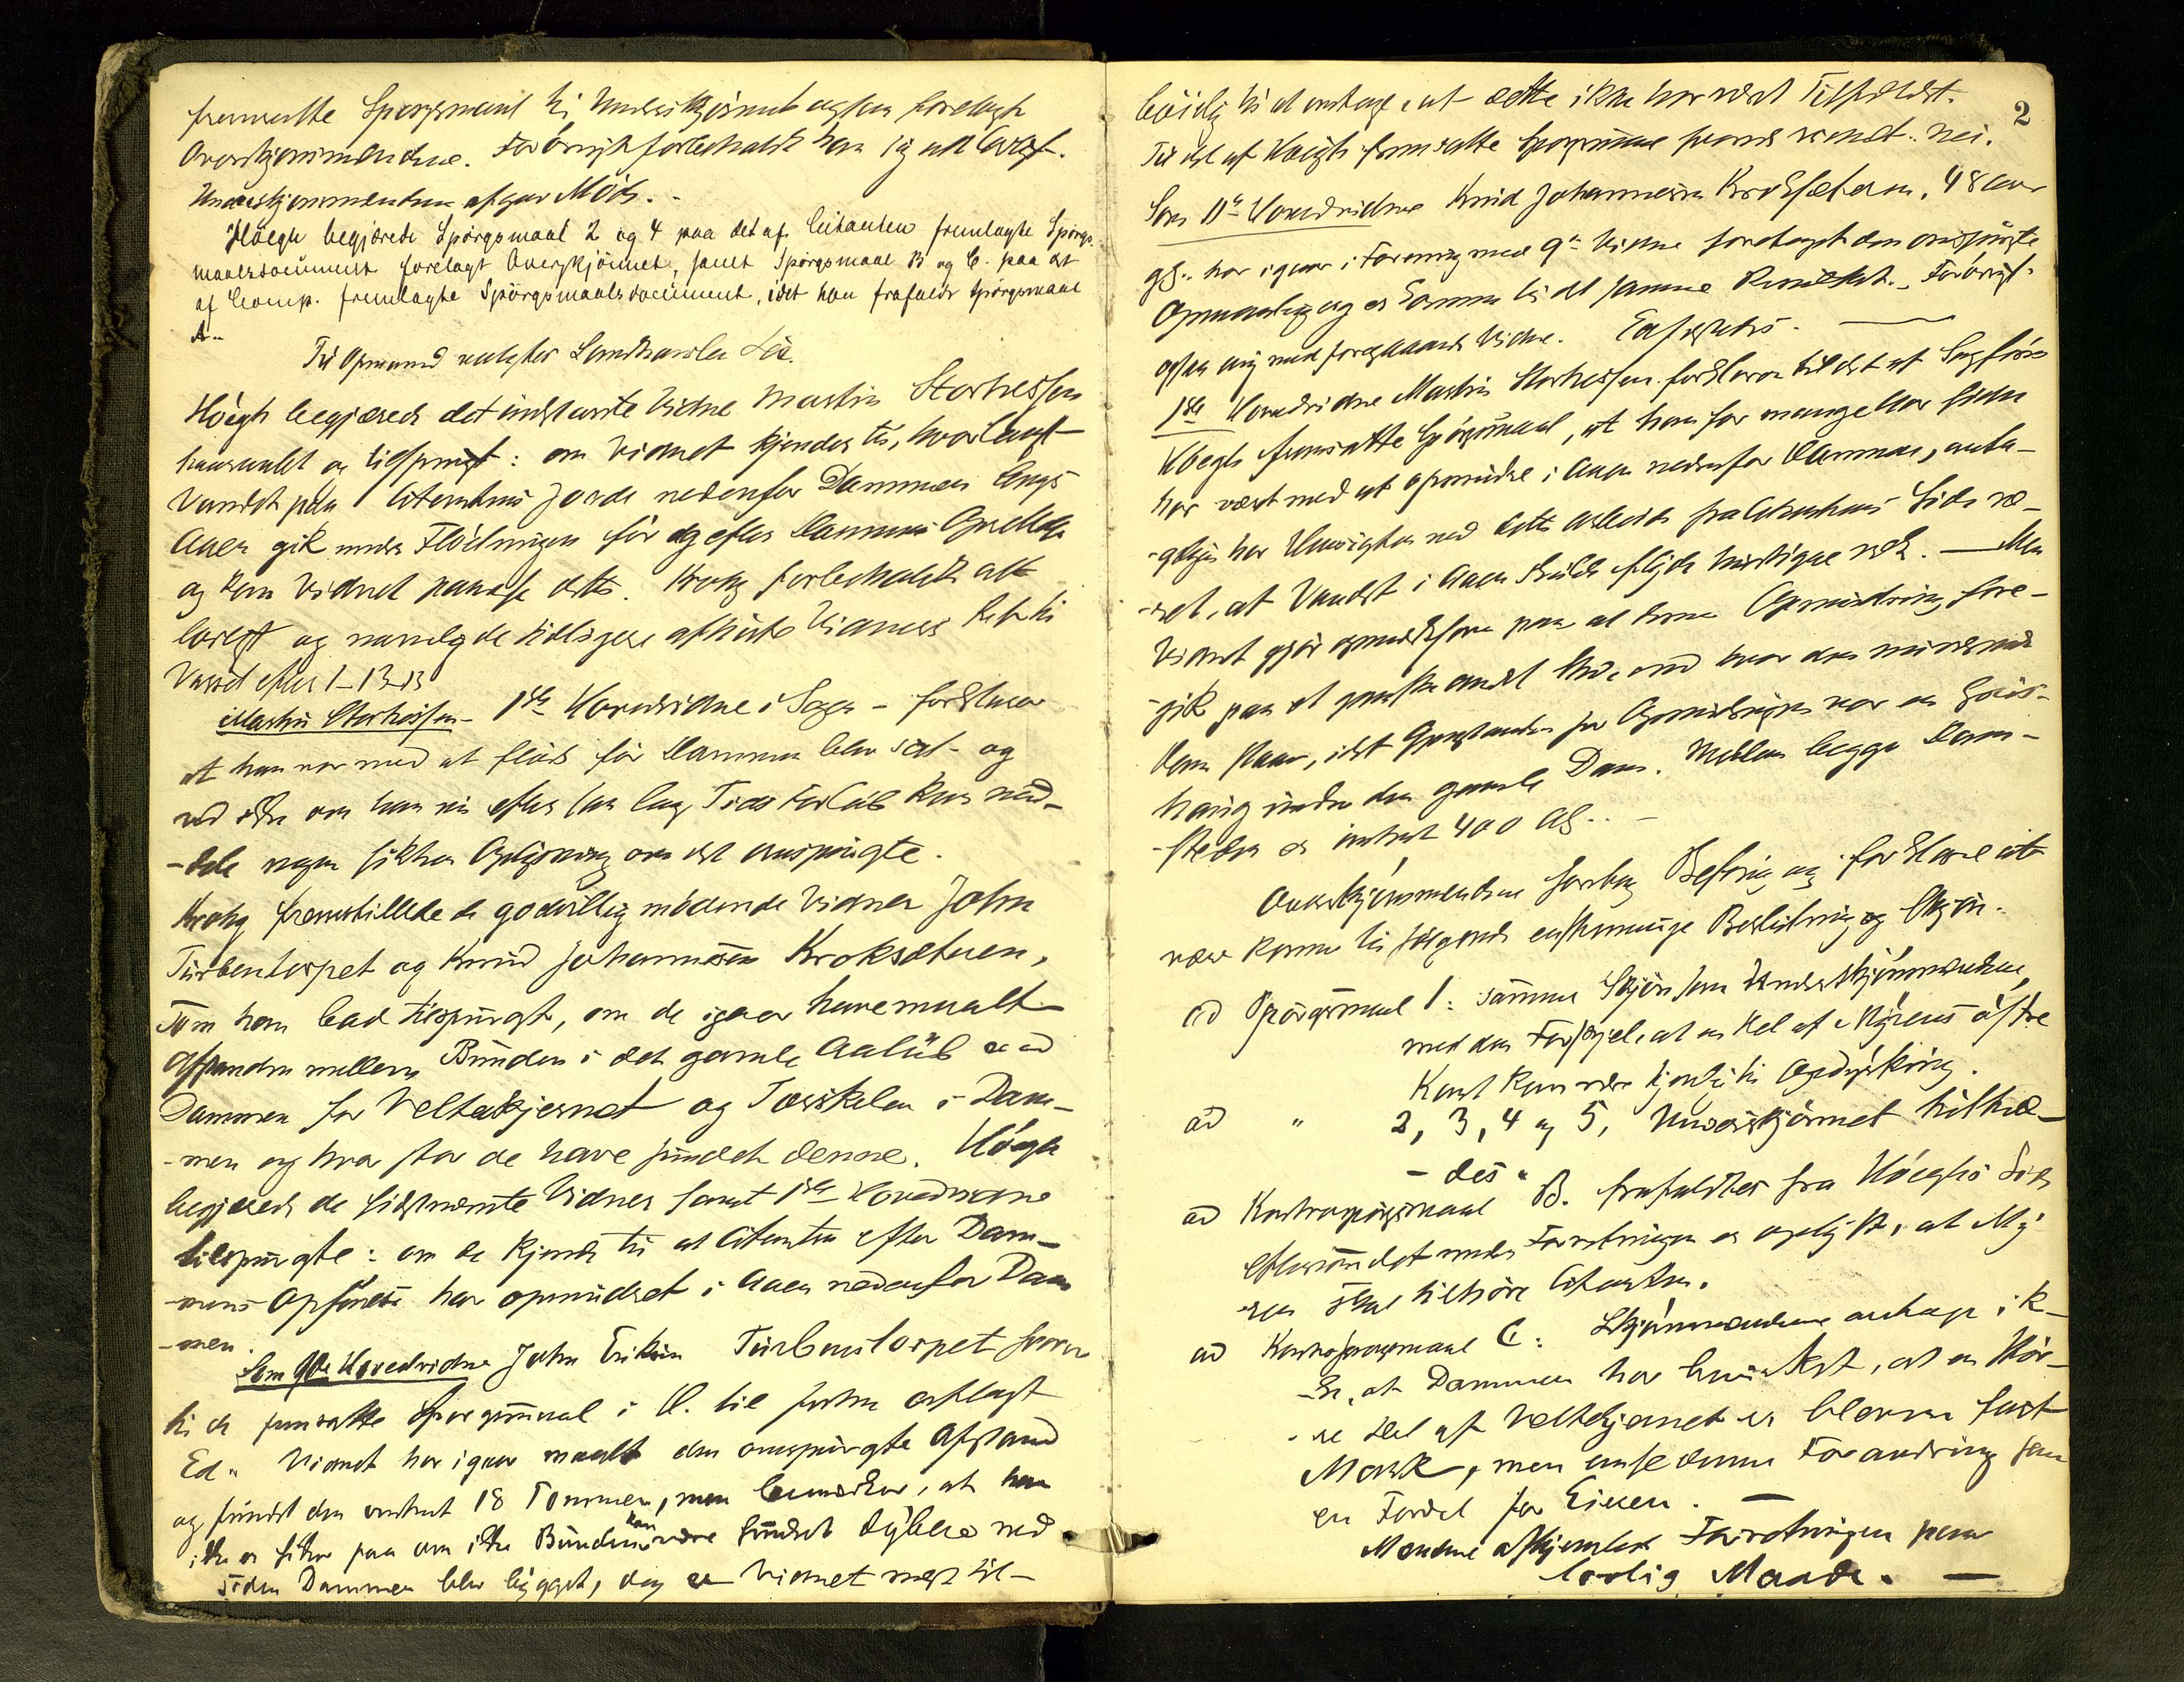 fremsatte Spørgsmaal til Underskjønnet ogsaa forelagt
Overskjønnsmændene. Forøvrigt forbeholdt han sig alt lovligt.
Underskjønsmændene afgav Møde.
Høegh begjærede Spørgsmaal 2 og 4 paa det af Citanten fremlagte Spørgs-
maalsdocument forelagt Overskjönnet, samt Spörgsmaal B og C. paa det
af Comp. fremlagte Spörgsmaalsdocument, idet han frafaldt Spörgsmaal
A.
Til Opmand valgtes Lendhandler Lie.
Høegh begjærede det indstævnte Vidne Martin Storhessen
fremkaldt og tilspurgt: om Vidnet kjender til, hvor langt
Vandet paa Citantens Jorde nedenfor Dammen langs
Aaen gik under Flödningen för og efter Dammens
og kom Vidnet paa dette. Krohg forbeholdt alt
lovligt og
Vassel efter 1-13-13
Martin Storhessen - 1ste Hovedvidne i Sagen - forklarer
at han var med at flöde för Dammen blev sat - og
ved ikke om han nu efter saa lang Tids Forløb kan med-
-dele nogen sikker Oplysning om det omspurgte.
Krohg fremstillede de godvillig mödende Vidner John
Turbentorpet og Knud Johannesen Kroksæteren,
som han bad tilspurgt, om de igaar have maalt
Afstanden mellem Bunden i det gamle Aalöb ved
Dammen for Veltekjernet og Tærskelen i Dam-
-men og hvor stor de have fundet denne. Høegh
begjærede de sidstnævnte Vidner samt 1ste Hovedvidne
tilspurgte: om de kjende til at Citanten efter Dam-
-mens Opförelse har opmudret i Aaen nedenfor Dam
-men.
Som 9de Hovedvidne John Eriksen Turbentorpet svarer
til de fremsatte Spørgsmaal i H. til forhen aflagt
Ed. Vidnet har igaar maalt den omspurgte Afstand
og fundet den omtrent 18 Tommer, men bemærker, at han
ikke er sikker paa om ikke Bunden kan være bundet dybere ned
siden Dammen blev bygget, dog er Vidnet mest til-
2
böielig til at antage, at dette ikke har været Tilfældet.
Til det af Høegh fremsatte Spørgsmaal svarer Vidnet: nei.
Som 11te Hovedvidne Knud Johannesen Kroksæteren, 48 Aar
gl. har igaar i Forening med 9de Vidne foretaget den omspurgte
Opmaaling og er kommen til det samme Resultat. Forøvrigt
enig med foregaaende Vidne. Eafsluttes.
1ste Hovedvidne Martin Storhessen forklarer til det af Sagförer
Høegh fremsatte Spørgsmaal, at han for mange Aar siden
har været med at opmudre i Aaen nedenfor Dammen, anta-
-gelig har Hensigten med dette Arbeide fra Citantens Side væ-
-ret, at Vandet i Aaen skulde flyde hurtigere væk. — Men
Vidnet gjör opmærksom paa at denne Opmudring fore-
-gik paa et ganske andet Sted, end hvor den nuværende
Dam staar, idet Gjenstanden for Opmudringen var en Grus-
haug under den gamle Dam. Mellem begge Dam-
-steder er omtrent 400 Al. -
Overskjønsmændene foretog Befaring og forklarede at
være komne til fölgende enstemmige Beslutning og Skjön.
ad Spörgsmaal 1: samme Skjön som Underskjönsmændene,
med den Forskjel, at en Del af Myrens östre
Kant kan være tjenlig til Opdyrkning.
ad " 2, 3, 4 og 5, Underskjönnet tiltræ-
- des.
ad Kontraspørgsmaal B. frafaldtes fra Høeghs Side
eftersom det under Forretningen er oplyst, at My-
-ren skal tilhöre Citanten.
ad Kontraspørgsmaal C: Skjönsmændene antage ik-
-ke, at Dammen har bevirket, at en Stör-
-re Del af Veltekjernet er bleven fast
Mark, men anse denne Forandring som
en Fordel for Eieren. —
Mændene afhjemlede Forretningen paa
lovlig Maade. —